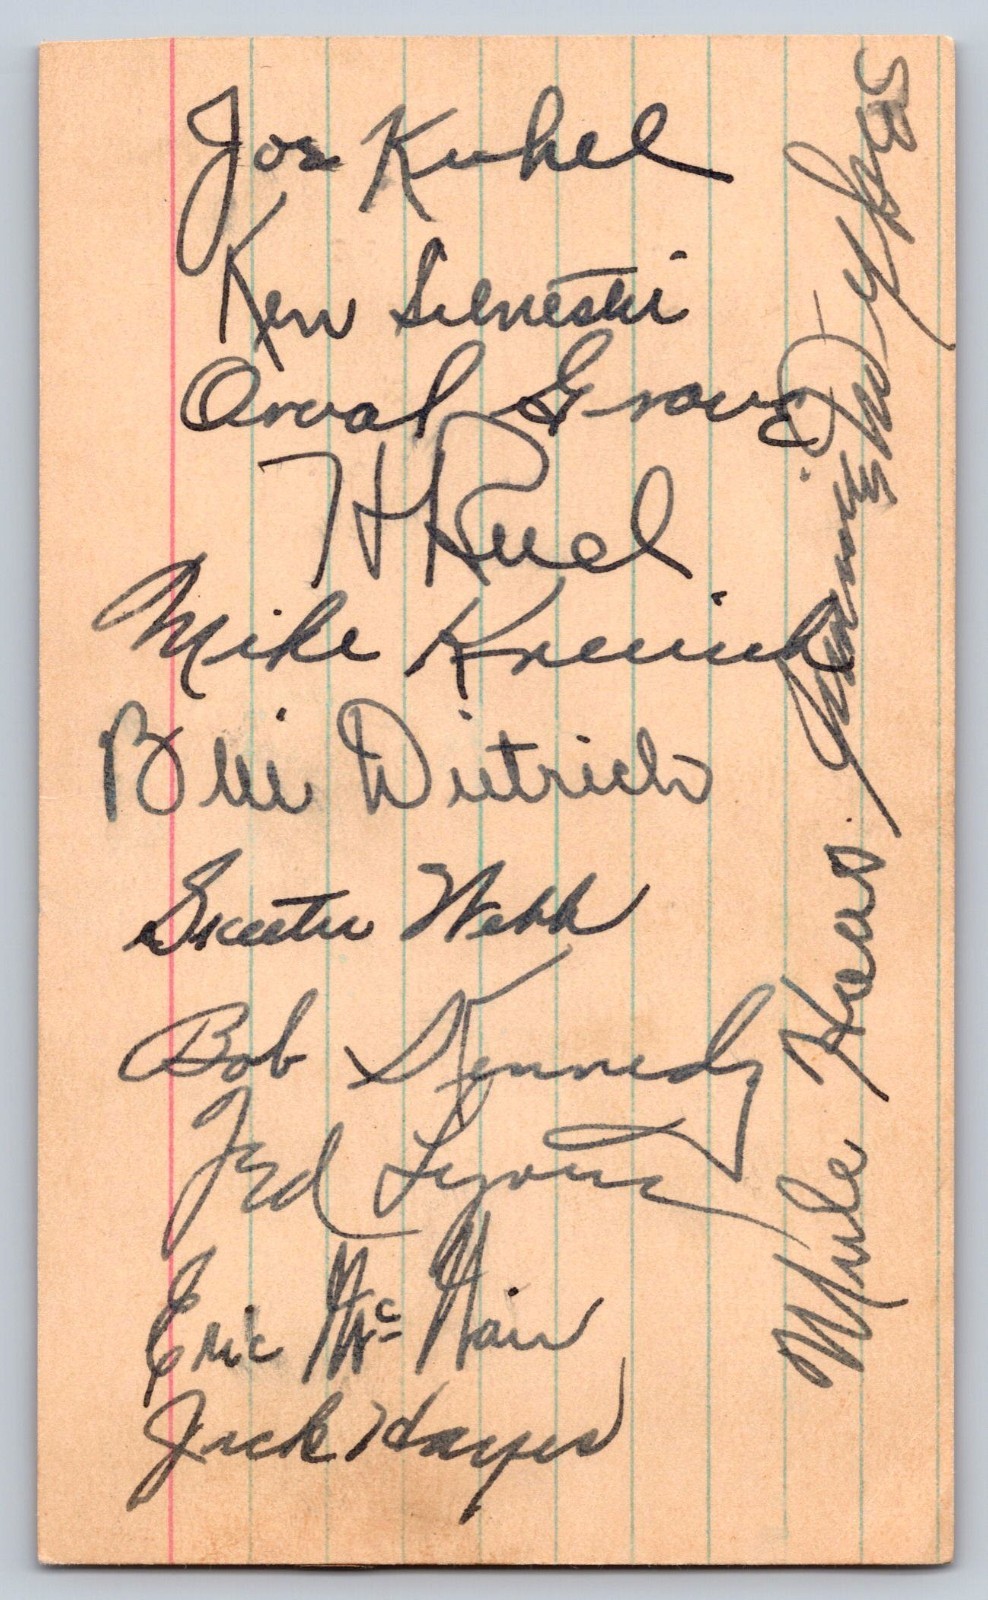 Joe Kuhel
Ken Silvestri
Orval Grove
H Ruel
Mike Kreevich
Bill Dietrich
Skeeter Webb
Bob Kennedy
Ted Lyons
Eric McNair
Jack Hayes
Mule Haas